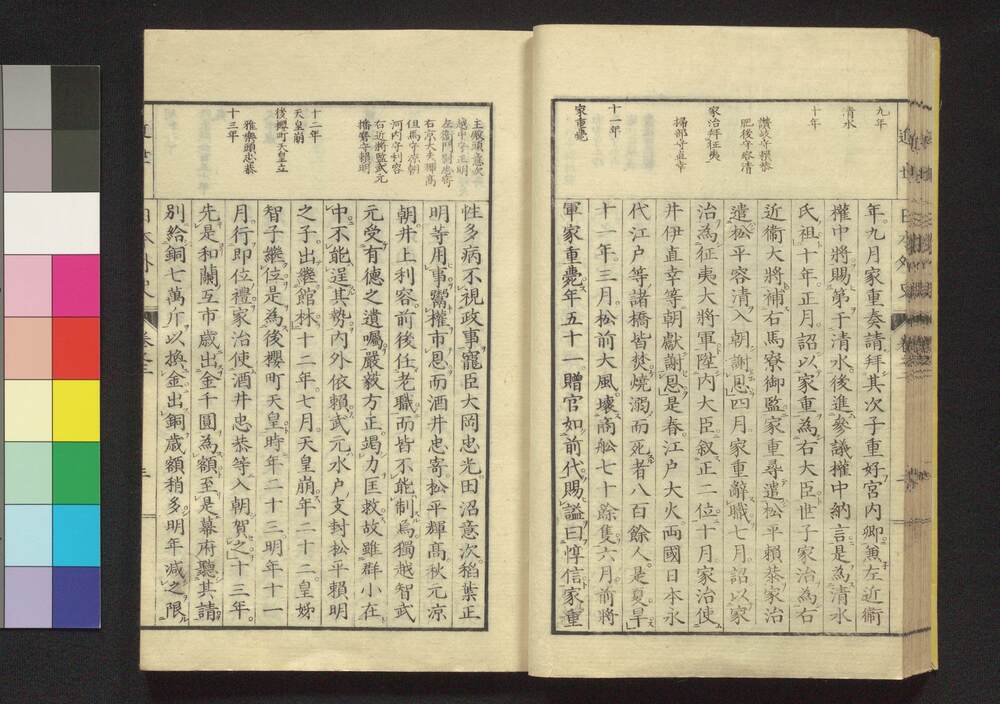 九年
清水
十年
讃岐守頼恭
肥後守容清
家治拜征夷
掃部守直幸
十一年
家重薨
年九月家重奏請拜其次子重好宮内卿兼左近衞
權中將賜第于清水後進參議權中納言是為清水
氏祖十年正月詔以家重為右大臣世子家治為右
近衞大將補右馬寮御監家重尋遣松平賴恭家治
遣松平容清入朝謝恩四月家重辭職七月詔以家
治為征夷大將軍陞内大臣叙正二位十月家治使
井伊直幸等朝獻謝恩是春江戸大火両國日本永
代江戸等諸橋皆焚燒溺而死者八百餘人是夏旱
十一年三月松前大風壞商舩七十餘隻六月前將
軍家重薨年五十一贈官如前代賜謚曰惇信家重
主殿頭意次
越中守正明
左衞門尉忠寄
右京大夫輝高
但馬守凉朝
河内守利容
右近將監武元
播磨守賴明
十二年
天皇崩
後櫻町天皇立
雅樂頭忠恭
十三年
性多病不視政事寵臣大岡忠光田沼意次稻葉正
明等用事鬻權市恩而酒井忠寄松平輝高秋元凉
朝井上利容前後任老職而皆不能制焉獨越智武
元受有德之遺囑嚴毅方正竭力匡救故雖群小在
中不能逞其勢内外依賴武元水戸支封松平賴明
之子出繼館林十二年七月天皇崩年二十二皇姊
智子繼位是為後櫻町天皇時年二十三明年十一
月行即位禮家治使酒井忠恭等入朝賀之十三年
先是和蘭互市歳出金千圓為額至是幕府聽其請
別給銅七萬斤以換金出銅歳額稍多明年減之限